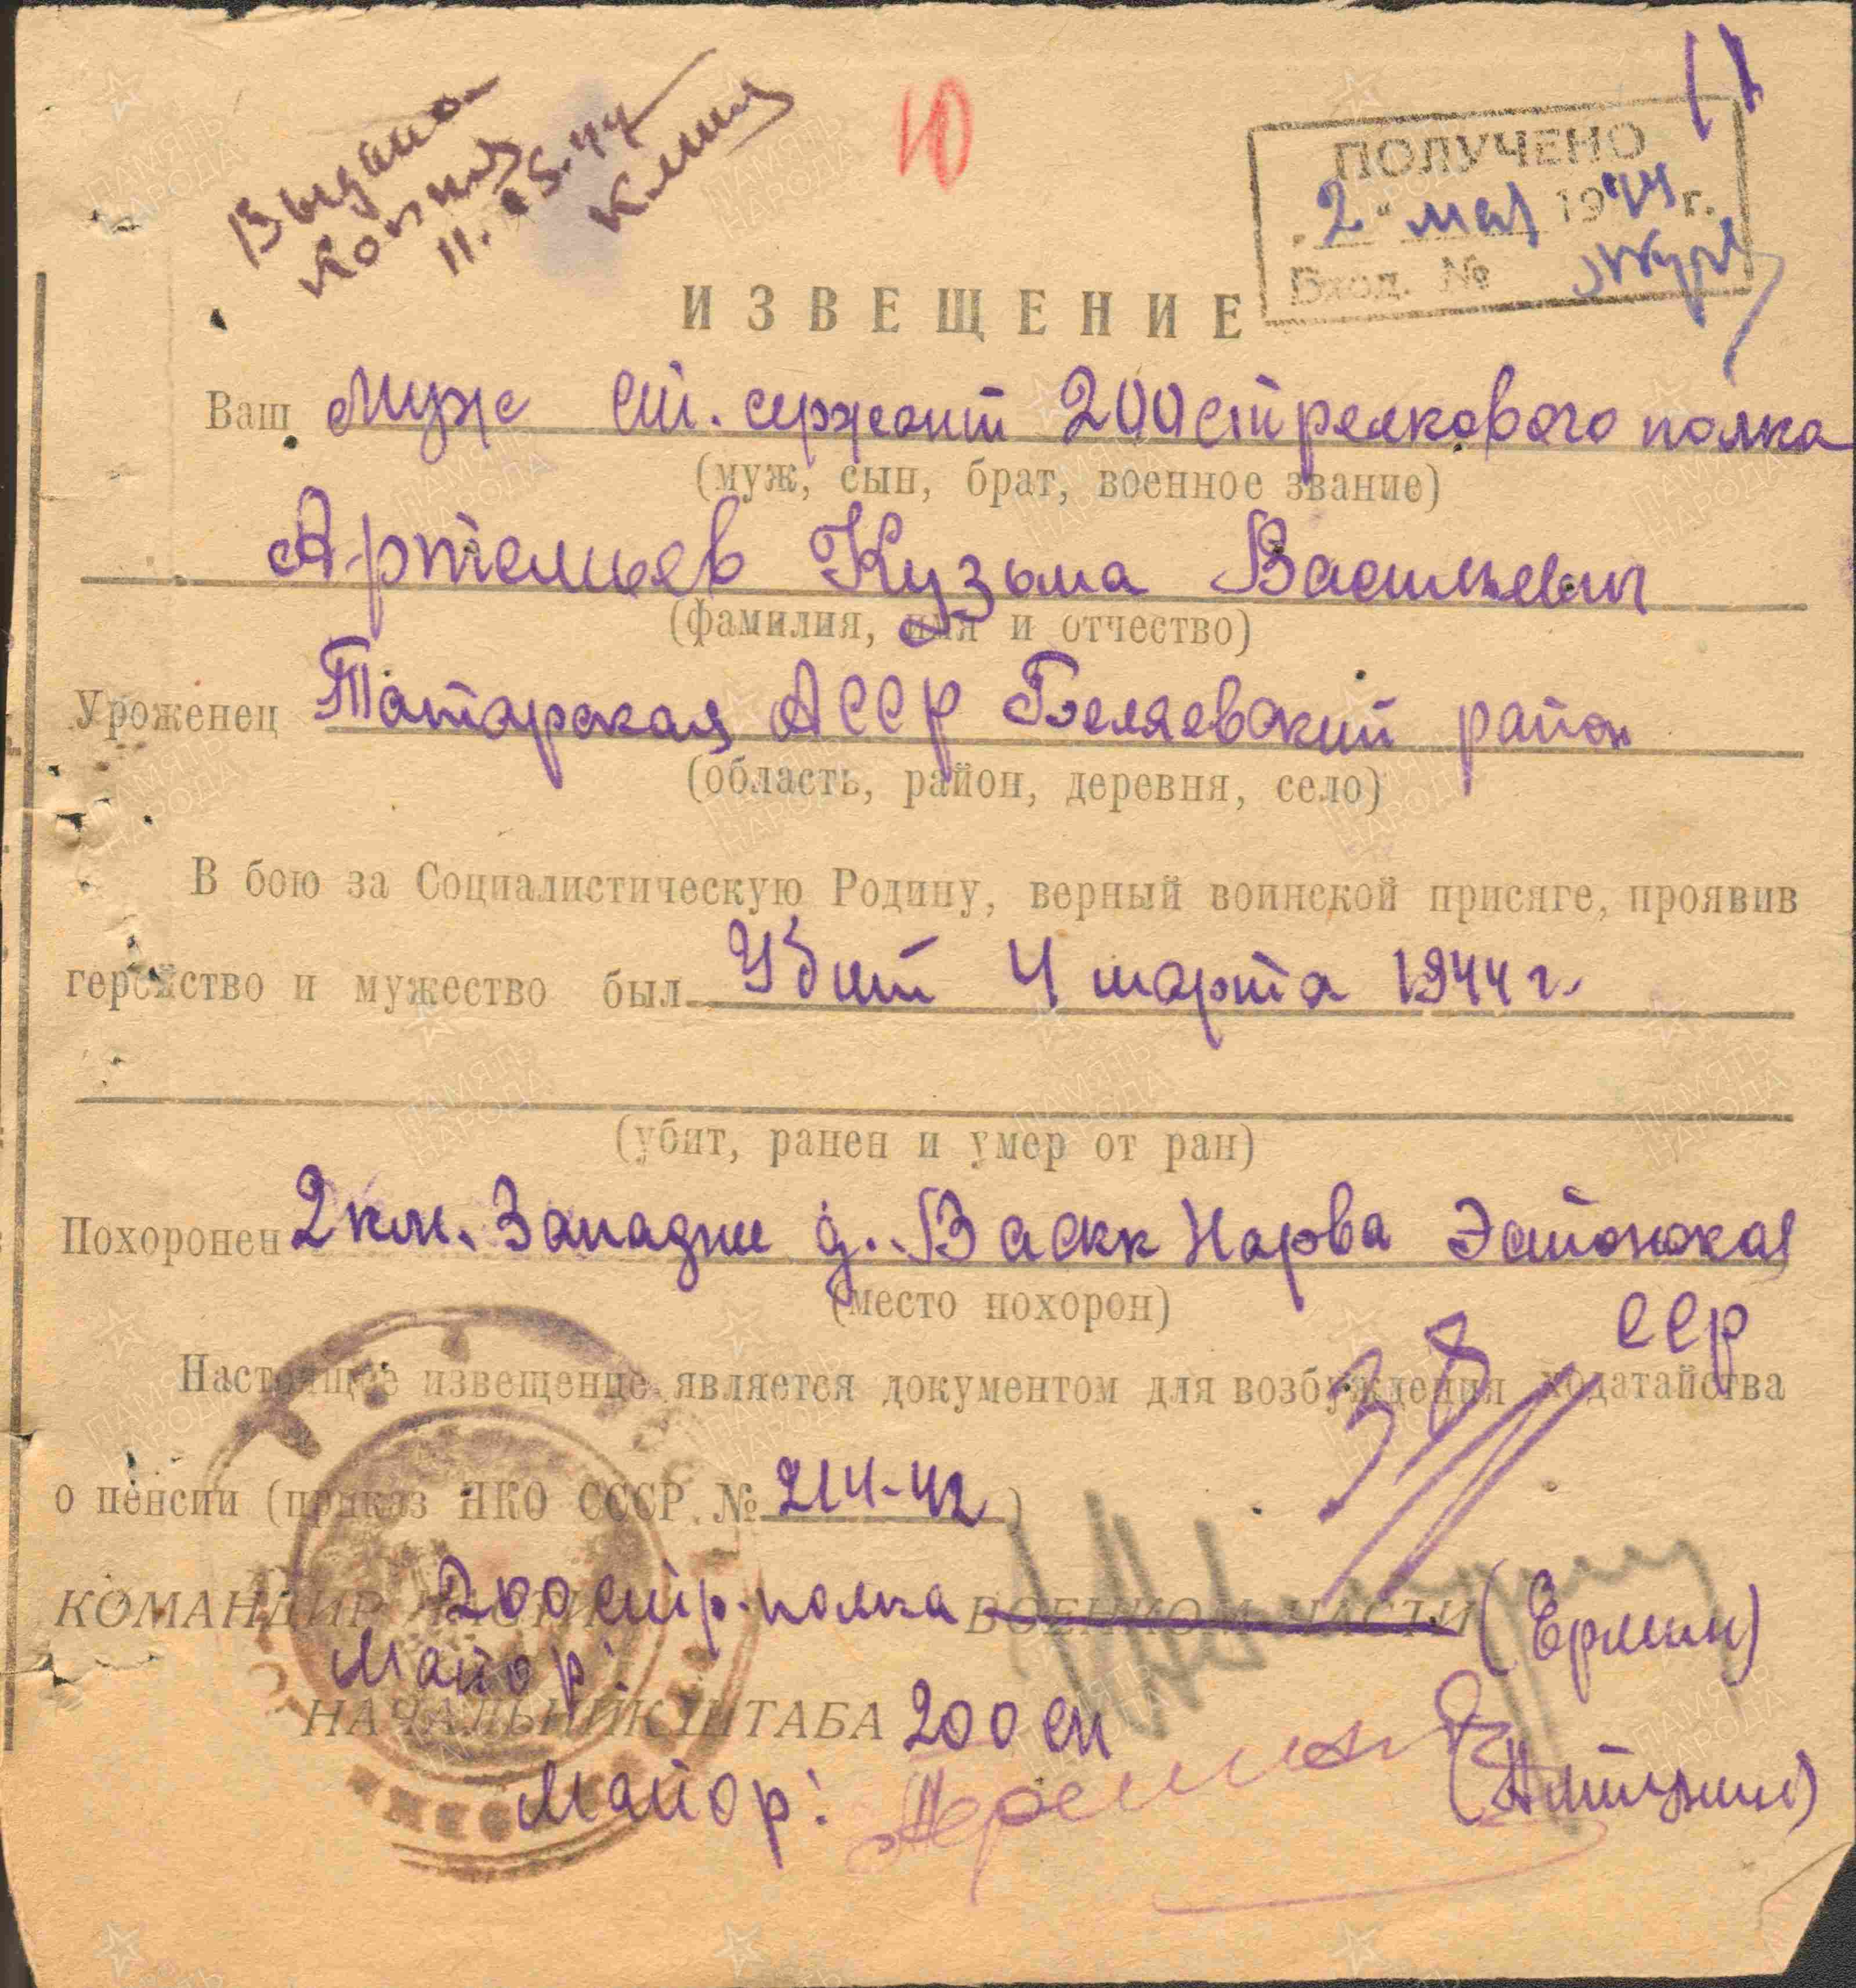 Выдана
копия
11.05.44
10
11
ПОЛУЧЕНО
"2" мая 1944 г.
Вход. №
ИЗВЕЩЕНИЕ
Ваш муж ст. сержант 200 стрелкового полка
(муж, сын, брат, военное звание)
Артемьев Кузьма Васильевич
(фамилия, имя и отчество)
Уроженец Татарская АССР Беляевский район
(область, район, деревня, село)
В бою за Социалистическую Родину, верный воинской присяге, проявив
геройство и мужество был Убит 4 марта 1944 г.
(убит, ранен и умер от ран)
Похоронен 2 км. Западнее д. Васкнарва Эстонская
ССР
(место похорон)
Настоящее извещение является документом для возбуждения ходатайства
38
о пенсии (приказ НКО СССР № 214-42)
КОМАНДИР ЧАСТИ 200 стр. полка ВОЕНКОМ ЧАСТИ (Ермин)
Майор:
НАЧАЛЬНИК ШТАБА 200 сп
Майор:
ПАМЯТЬ НАРОДА